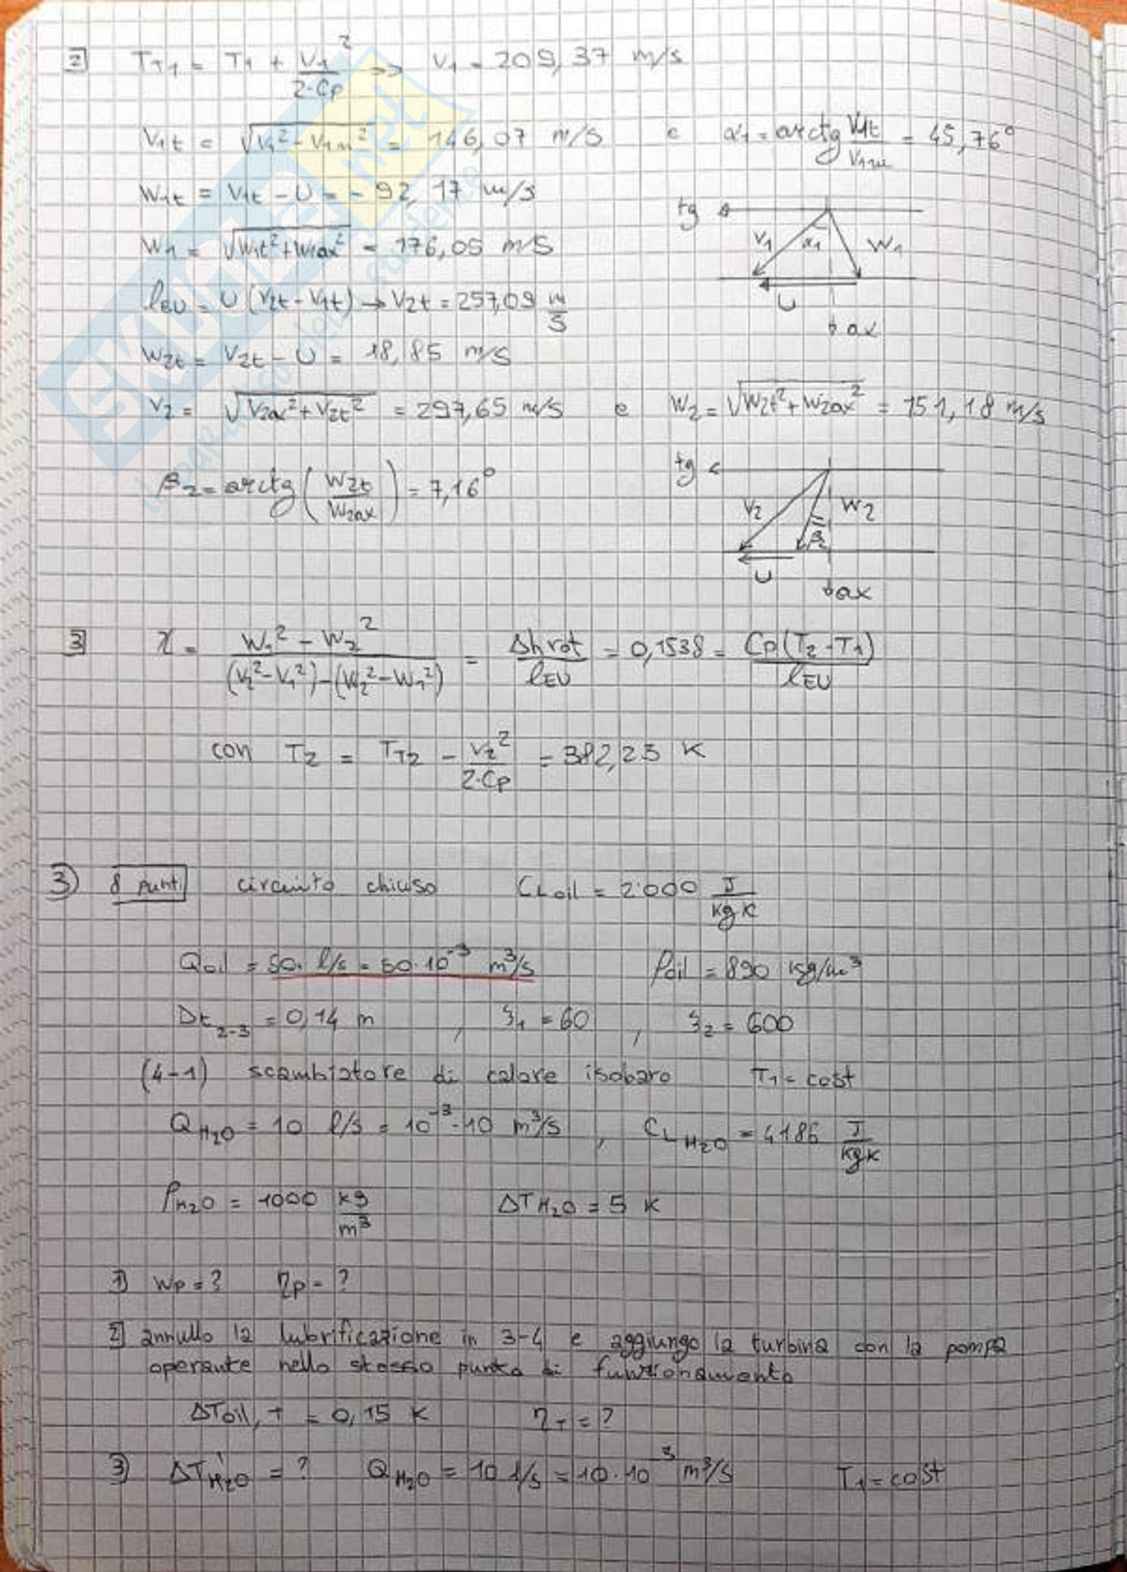 2] TT1 = T1 + V1²/(2·Cp) => V1 = 209,37 m/s
V1t = √(V1² - V1m²) = 146,07 m/s e α1 = arctg V1t/V1m = 45,76°
W1t = V1t - U = - 92,17 m/s
W1 = √(W1t² + W1ax²) = 176,05 m/s
tg V1 α1 W1 U ax
lEU = U (V2t - V1t) → V2t = 257,09 m/s
W2t = V2t - U = 18,85 m/s
V2 = √(V2ax² + V2t²) = 297,65 m/s e W2 = √(W2t² + W2ax²) = 151,18 m/s
β2 = arctg (W2t/W2ax) = 7,16°
tg V2 W2 β2 U ax
3] χ = (W1² - W2²)/((V2² - V1²) - (W2² - W1²)) = Δhrot/lEU = 0,1538 = Cp(T2 - T1)/lEU
con T2 = TT2 - V2²/(2·Cp) = 382,23 K
3) 8 punti circuito chiuso CLoil = 2000 J/kgK
Qoil = 50 l/s = 50·10⁻³ m³/s ρoil = 890 kg/m³
Dt2-3 = 0,14 m , ξ1 = 60 , ξ2 = 600
(4-1) scambiatore di calore isobaro T1 = cost
QH2O = 10 l/s = 10⁻³·10 m³/s , CLH2O = 4186 J/kgK
ρH2O = 1000 kg/m³ ΔTH2O = 5 K
1] Wp = ? ηp = ?
2] annullo la lubrificazione in 3-4 e aggiungo la turbina con la pompa
operante nello stesso punto di funzionamento
ΔToil,T = 0,15 K ηT = ?
3] ΔT'H2O = ? QH2O = 10 l/s = 10·10⁻³ m³/s T1 = cost